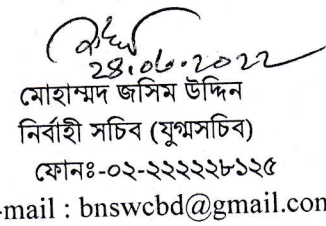 28.06.2022
মোহাম্মদ জসিম উদ্দিন
নির্বাহী সচিব (যুগ্মসচিব)
ফোনঃ-০২-২২২২২৮১২৫
-mail : bnswcbd@gmail.com